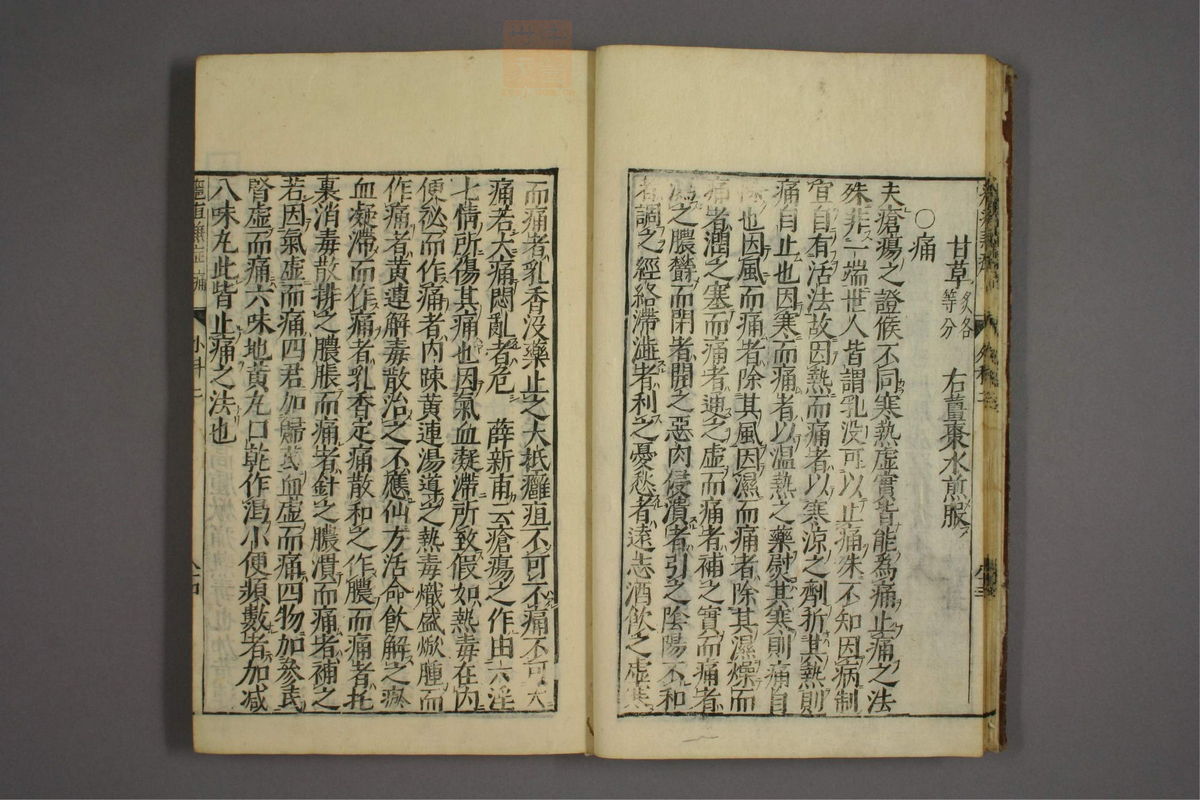 甘草 炙各等分 右薑棗水煎服
○痛
夫瘡瘍之證候不同寒熱虛實皆能為痛止痛之法
殊非一端世人皆謂乳沒可以止痛殊不知因病制
宜自有活法故因熱而痛者以寒涼之劑折其熱則
痛自止也因寒而痛者以溫熱之藥熨其寒則痛自
除也因風而痛者除其風因濕而痛者除其濕燥而
痛者潤之塞而痛者通之虛而痛者補之實而痛者
瀉之膿鬱而閉者開之惡肉侵潰者引之陰陽不和
者調之經絡滯澁者利之憂愁者遠志酒飲之虛寒
而痛者乳香沒藥止之大抵癰疽不可不痛不可大
痛若大痛悶亂者危 薛新甫云瘡瘍之作由六淫
七情所傷其痛也因氣血凝滯所致假如熱毒在內
便祕而作痛者內踈黃連湯導之熱毒熾盛焮腫而
作痛者黃連解毒散治之不應仙方活命飲解之瘀
血凝滯而作痛者乳香定痛散和之作膿而痛者托
裏消毒散排之膿脹而痛者針之膿潰而痛者補之
若因氣虛而痛四君加歸芪血虛而痛四物加參芪
腎虛而痛六味地黃丸口乾作渴小便頻數者加減
八味丸此皆止痛之法也